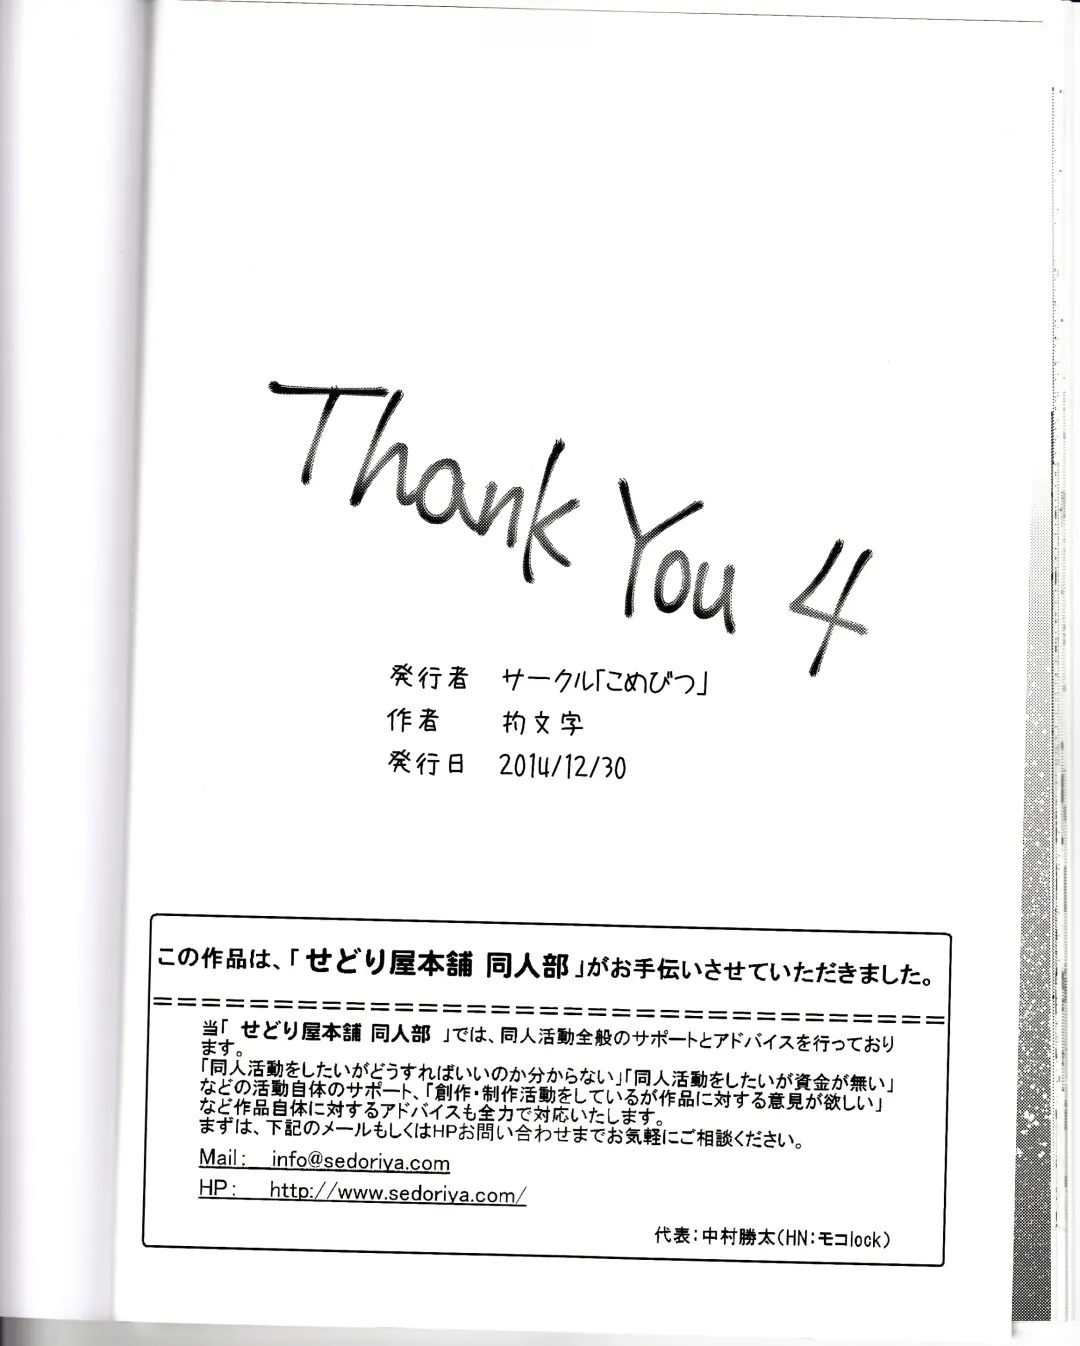 Thank You 4
発行者 サークル「こめびつ」
作者 杓文字
発行日 2014/12/30
この作品は、「せどり屋本舗 同人部」がお手伝いさせていただきました。
==================================
当「 せどり屋本舗 同人部 」では、同人活動全般のサポートとアドバイスを行っており
ます。
「同人活動をしたいがどうすればいいのか分からない」「同人活動をしたいが資金が無い」
などの活動自体のサポート、「創作・制作活動をしているが作品に対する意見が欲しい」
など作品自体に対するアドバイスも全力で対応いたします。
まずは、下記のメールもしくはHPお問い合わせまでお気軽にご相談ください。
Mail: info@sedoriya.com
HP: http://www.sedoriya.com/
代表:中村勝太(HN:モコlock)